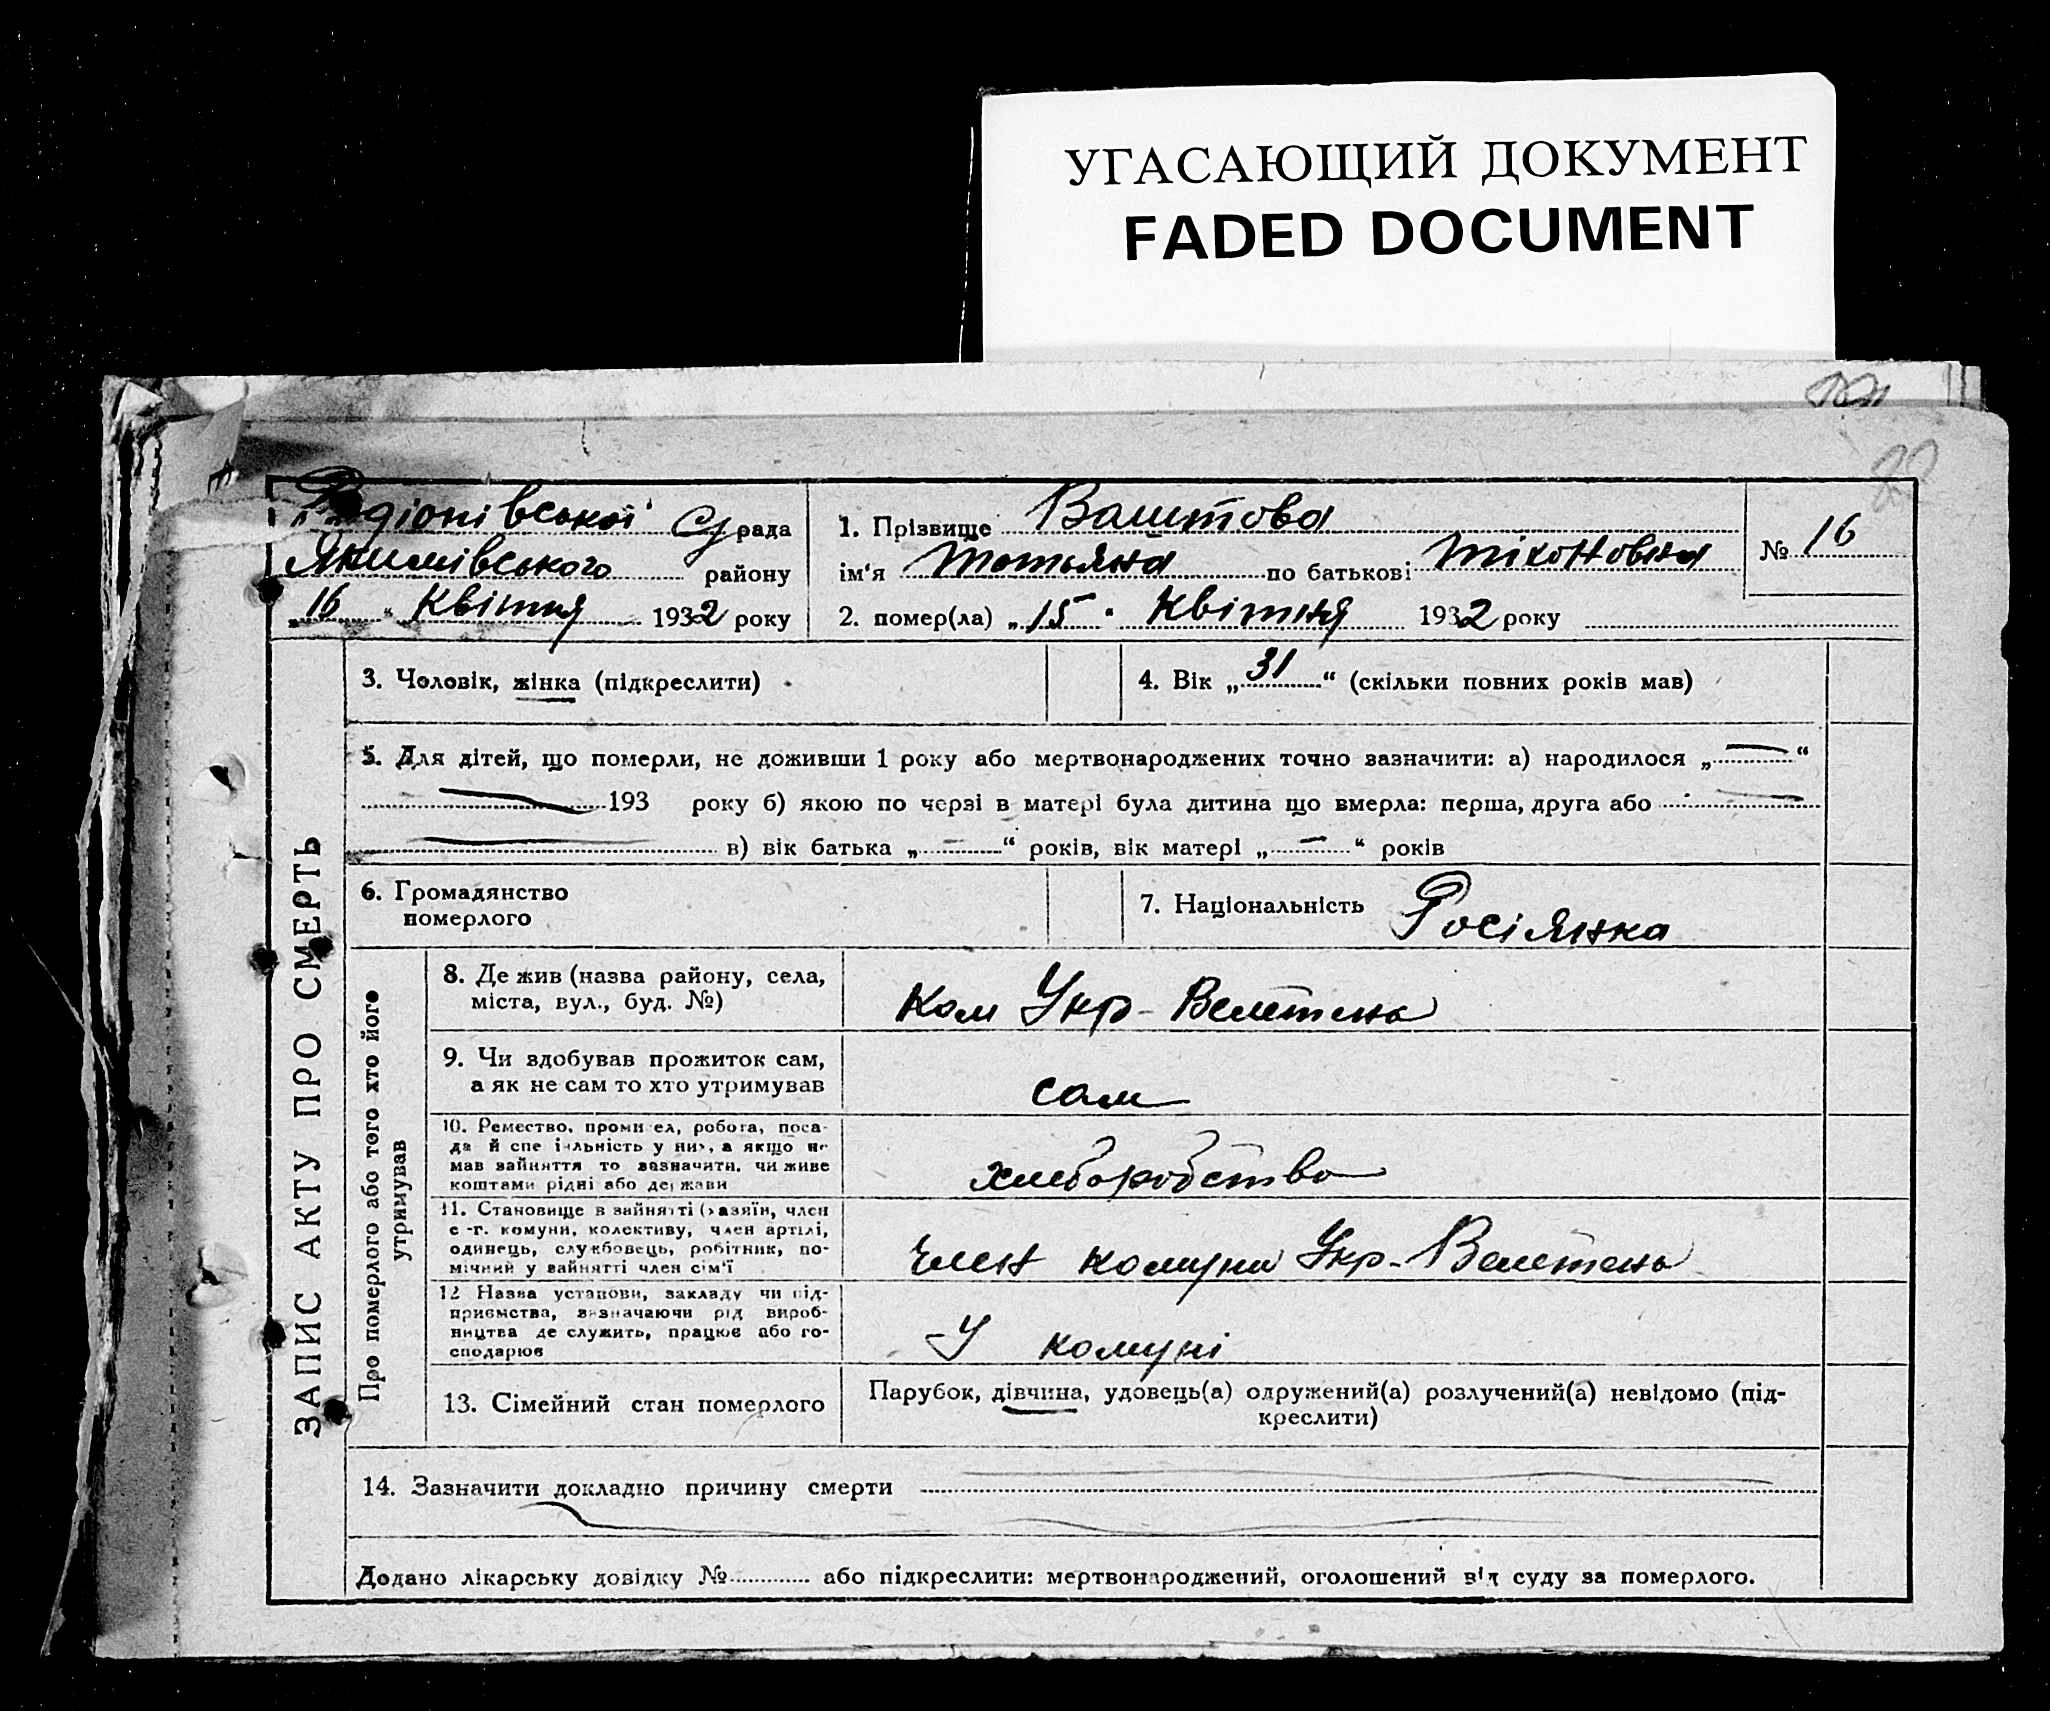 УГАСАЮЩИЙ ДОКУМЕНТ
FADED DOCUMENT
22
Радіонівської С/рада
Якимівського району
„16“ Квітня 1932 року
1. Прізвище Ваштова
ім'я Татьяна по батькові Тіхоновна
2. помер(ла) „15“ Квітня 1932 року
№ 16
ЗАПИС АКТУ ПРО СМЕРТЬ
3. Чоловік, жінка (підкреслити)
4. Вік „31“ (скільки повних років мав)
5. Для дітей, що померли, не доживши 1 року або мертвонароджених точно зазначити: а) народилося „—“
— 193 року б) якою по черзі в матері була дитина що вмерла: перша, друга або —
— в) вік батька „—“ років, вік матері „—“ років
6. Громадянство
померлого
7. Національність Росіянка
Про померлого або того хто його
утримував
8. Де жив (назва району, села,
міста, вул., буд. №)
Ком Укр-Велетень
9. Чи здобував прожиток сам,
а як не сам то хто утримував
сам
10. Ремество, промисел, робота, поса-
да й спеціяльність у них, а якщо не
мав зайняття то зазначити, чи живе
коштами рідні або держави
хлеборобство
11. Становище в зайнятті (хазяїн, член
с.-г. комуни, колективу, член артілі,
одинець, службовець, робітник, по-
мічний у зайнятті член сім'ї
член комуни Укр-Велетень
12 Назва установи, закладу чи під-
приємства, зазначаючи рід вироб-
ництва де служить, працює або го-
сподарює
У комуні
13. Сімейний стан померлого
Парубок, дівчина, удовець(а) одружений(а) розлучений(а) невідомо (під-
креслити)
14. Зазначити докладно причину смерти
Додано лікарську довідку № або підкреслити: мертвонароджений, оголошений від суду за померлого.